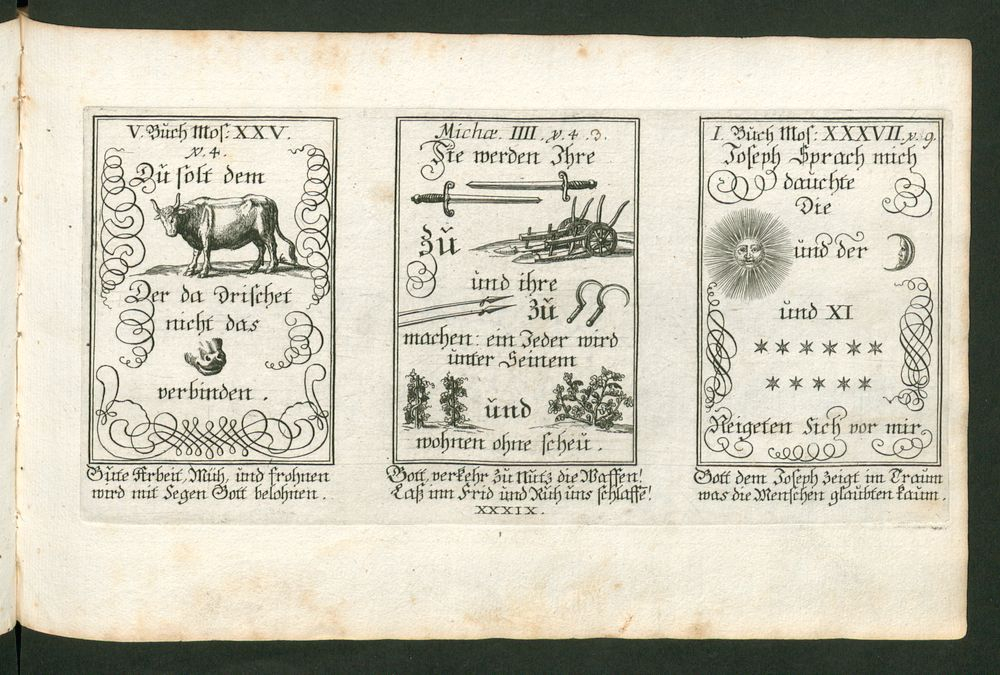 V. Buch Mos: XXV.
v. 4.
Du solt dem
Der da Drischet
nicht das
verbinden.
Gute Arbeit, Müh, und frohnen
wird mit Segen Gott belohnen.
Michæ. IIII. v. 4. 3.
Sie werden Ihre
zu
und ihre
zu
machen: ein Jeder wird
unter Seinem
und
wohnen ohne scheu.
Gott, verkehr zu Nutz die Waffen!
Laß inn Frid und Ruh uns schlaffe!
XXXIX.
I. Buch Mos: XXXVII. v. 9.
Joseph Sprach mich
dauchte
Die
und der
und XI
Neigeten Sich vor mir.
Gott dem Joseph zeigt im Traum
was die Menschen glaubten kaum.